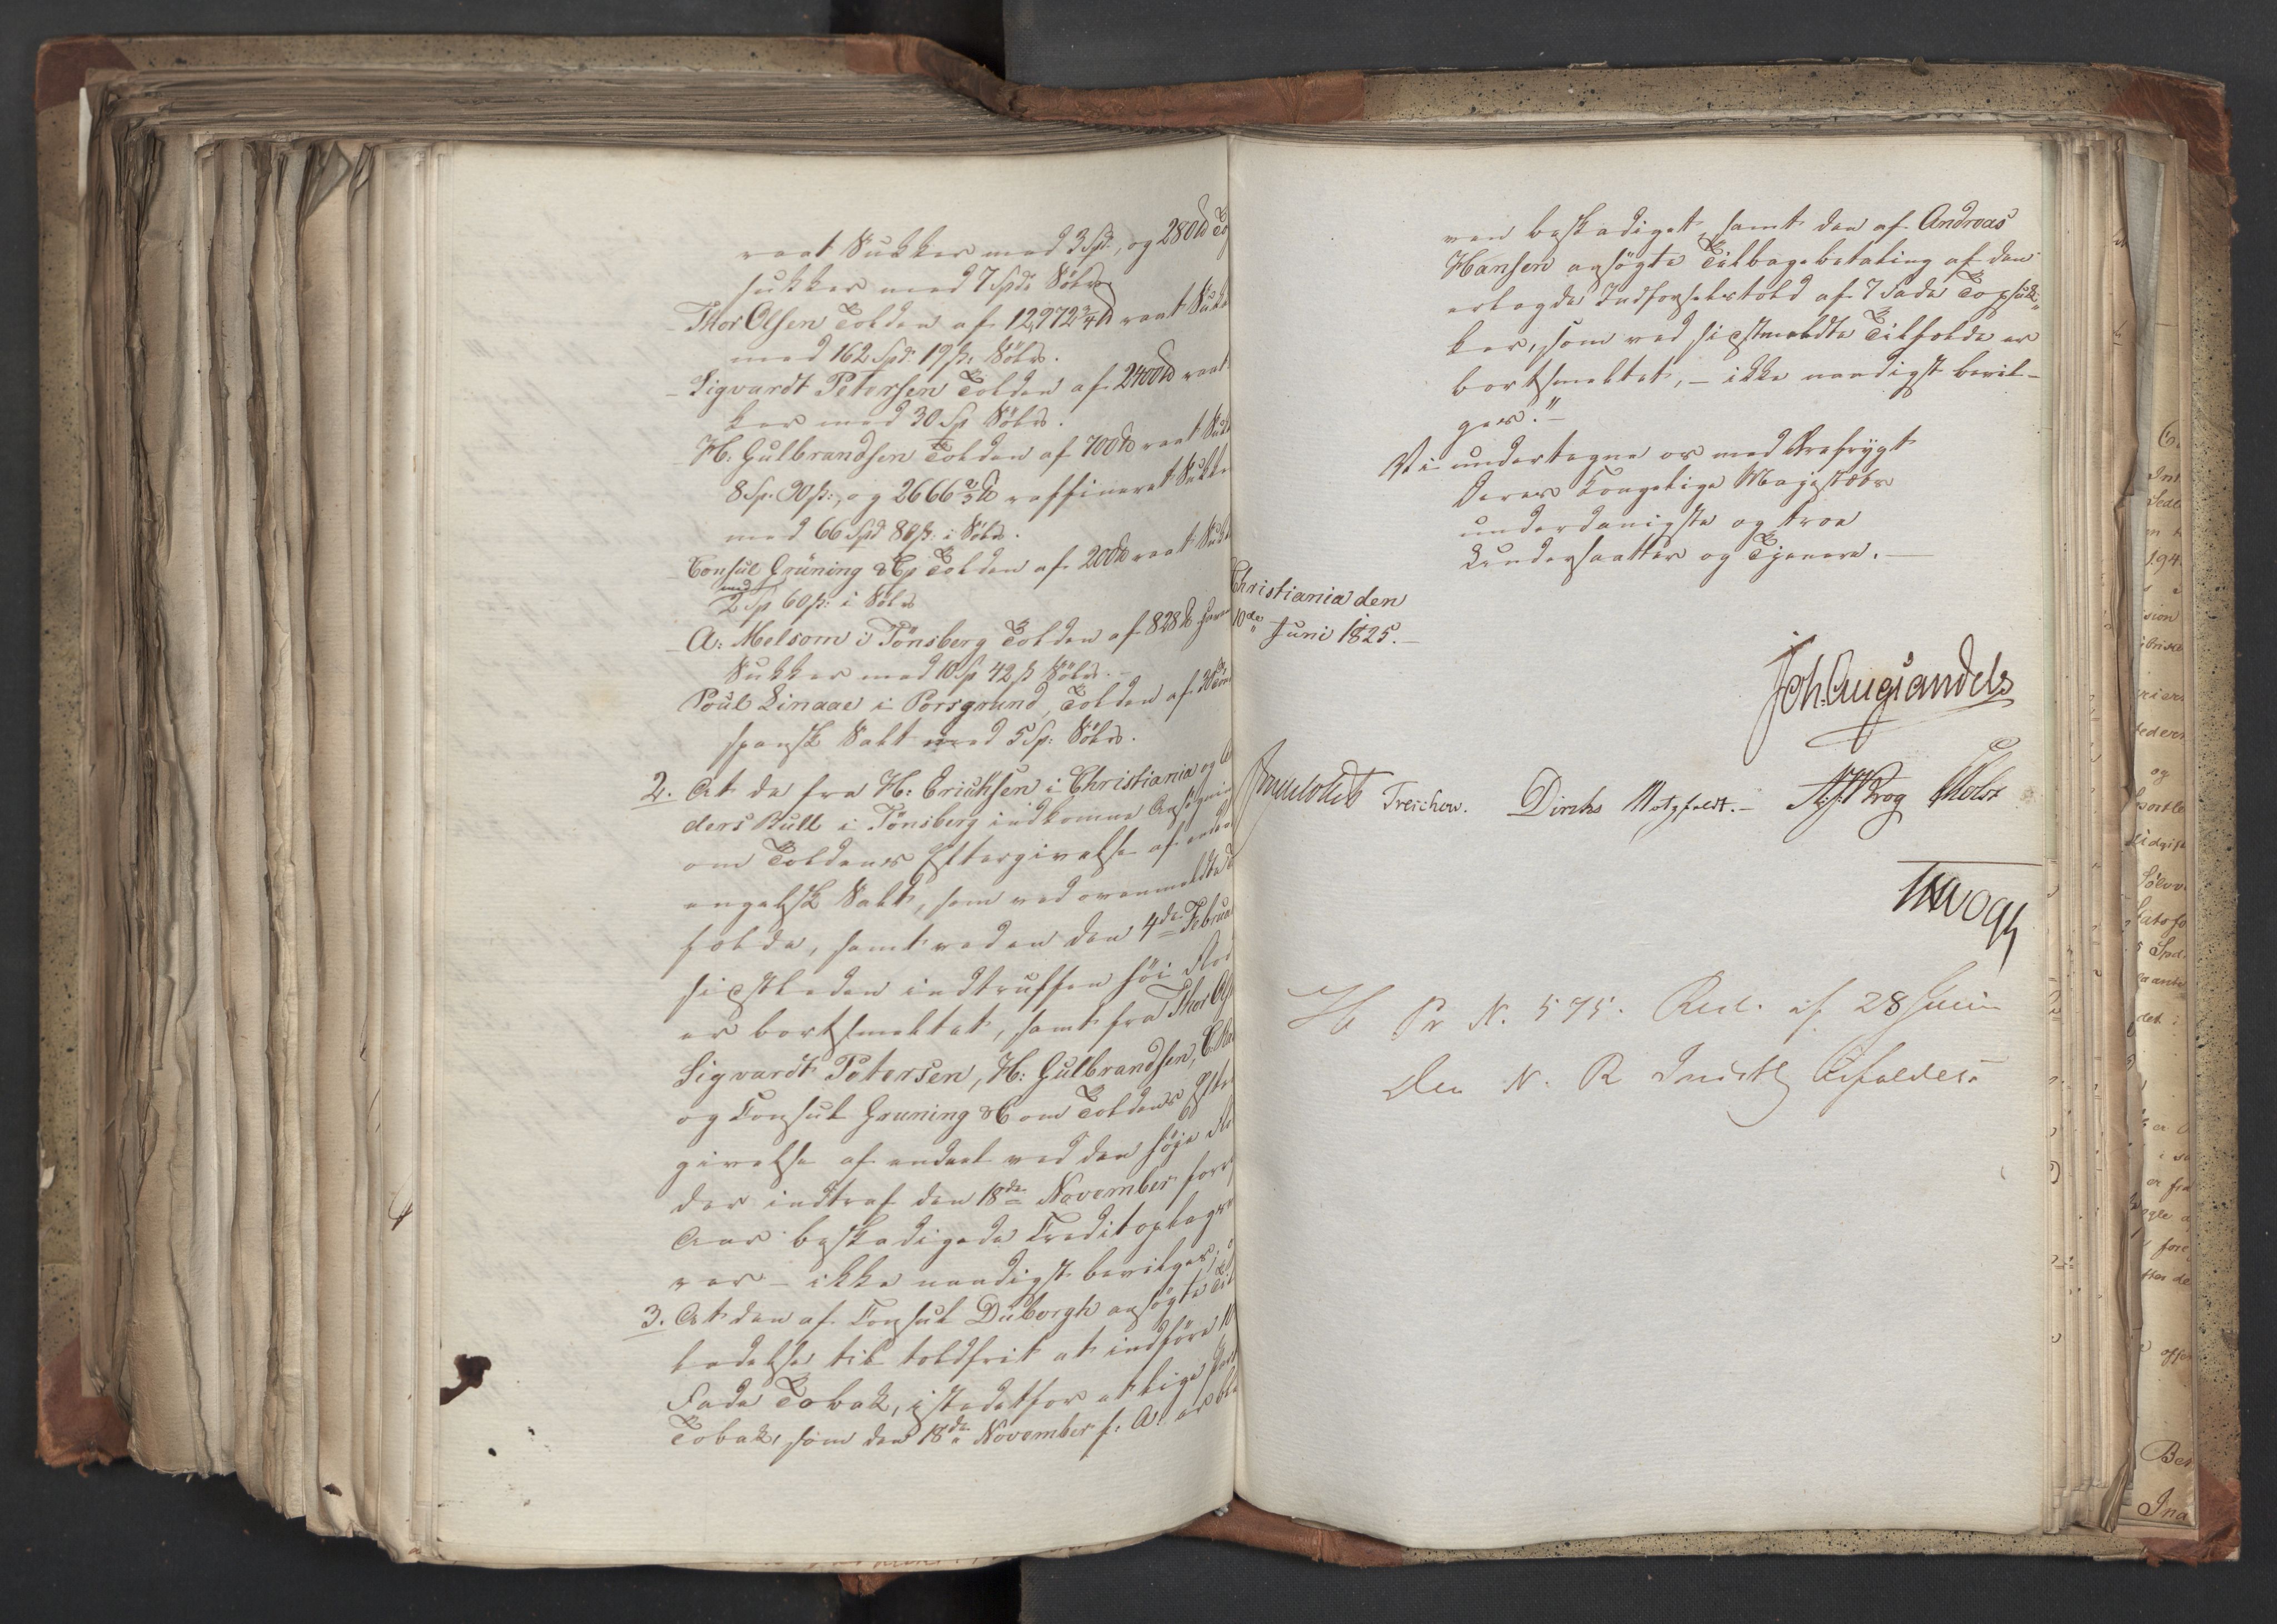 raat Sukker med 3 Spd, og 280 ℔ To
sukker med 7 Spd: Sölv.
- Thor Olsen Tolden af 12,972 3/4 ℔ raat Sukk
med 162 Spd: 19 ß: Sölv.
- Sigvardt Petersen Tolden af 2400 ℔ raat
ker med 30 Sp Sölv.
- H: Gulbrandsen Tolden af 700 ℔ raat Sukk
8 Sp. 90 ß:, og 2666 2/3 ℔ raffineret Sukke
med 66 Spd 80 ß: i Sölv.
- Consul Grüning & Cp Tolden af 200 ℔ raat Sukk
med
2 Sp 60 ß: i Sölv
- A: Melsom i Tönsberg Tolden af 828 ℔
Sukker med 10 Sp 42 ß Sölv.
Poul Linaae i Porsgrund, Tolden af 30 Tön
spansk Salt med 5 Sp: Sölv.
2. At de fra H: Erichsen i Christiania og A
ders Bull i Tönsberg indkomne Ansögnin
om Toldens Eftergivelse af
engelsk Salt, som ved ovenmeldte
folde, samt ved en den 4de Februa
sidstleden indtruffen höi Flod
er bortsmeltet, samt fra Thor Ols
Sigvardt Petersen, H: Gulbrandsen,
og Consul Gruning & C om Toldens Efter
givelse af endeel ved den höje Flo
der indtraf den 18de November forr
Aar beskadigede Creditoplags
rer - ikke naadigst bevilges,
3. At den af Consul Duborgh ansögte Til
ladelse til toldfrit at indföre 10
Fade Tobak, istedetfor et lige
Tobak, som den 18de November f: A: er ble
ven beskadiget, samt den af Andreas
Hansen ansögte Tilbagebetaling af den
erlagde Indförselstold af 7 Fade Topsuk-
ker, som ved sidstmeldte Tilfælde er
bortsmeltet, - ikke naadigst bevil-
ges." -
Vi undertegne os med Ærefrygt
Deres Kongelige Majestæts
underdanigste og troe
Undersaatter og Tjenere. -
Christiania den
10de Juni 1825. -
Joh. Aug Sandels
Treschow. Dirchs Motzfeldt. - Krog Holst
Vogt
H Pr N. 575. Res. af 28 Juni
Den N. R Indst bifaldes.